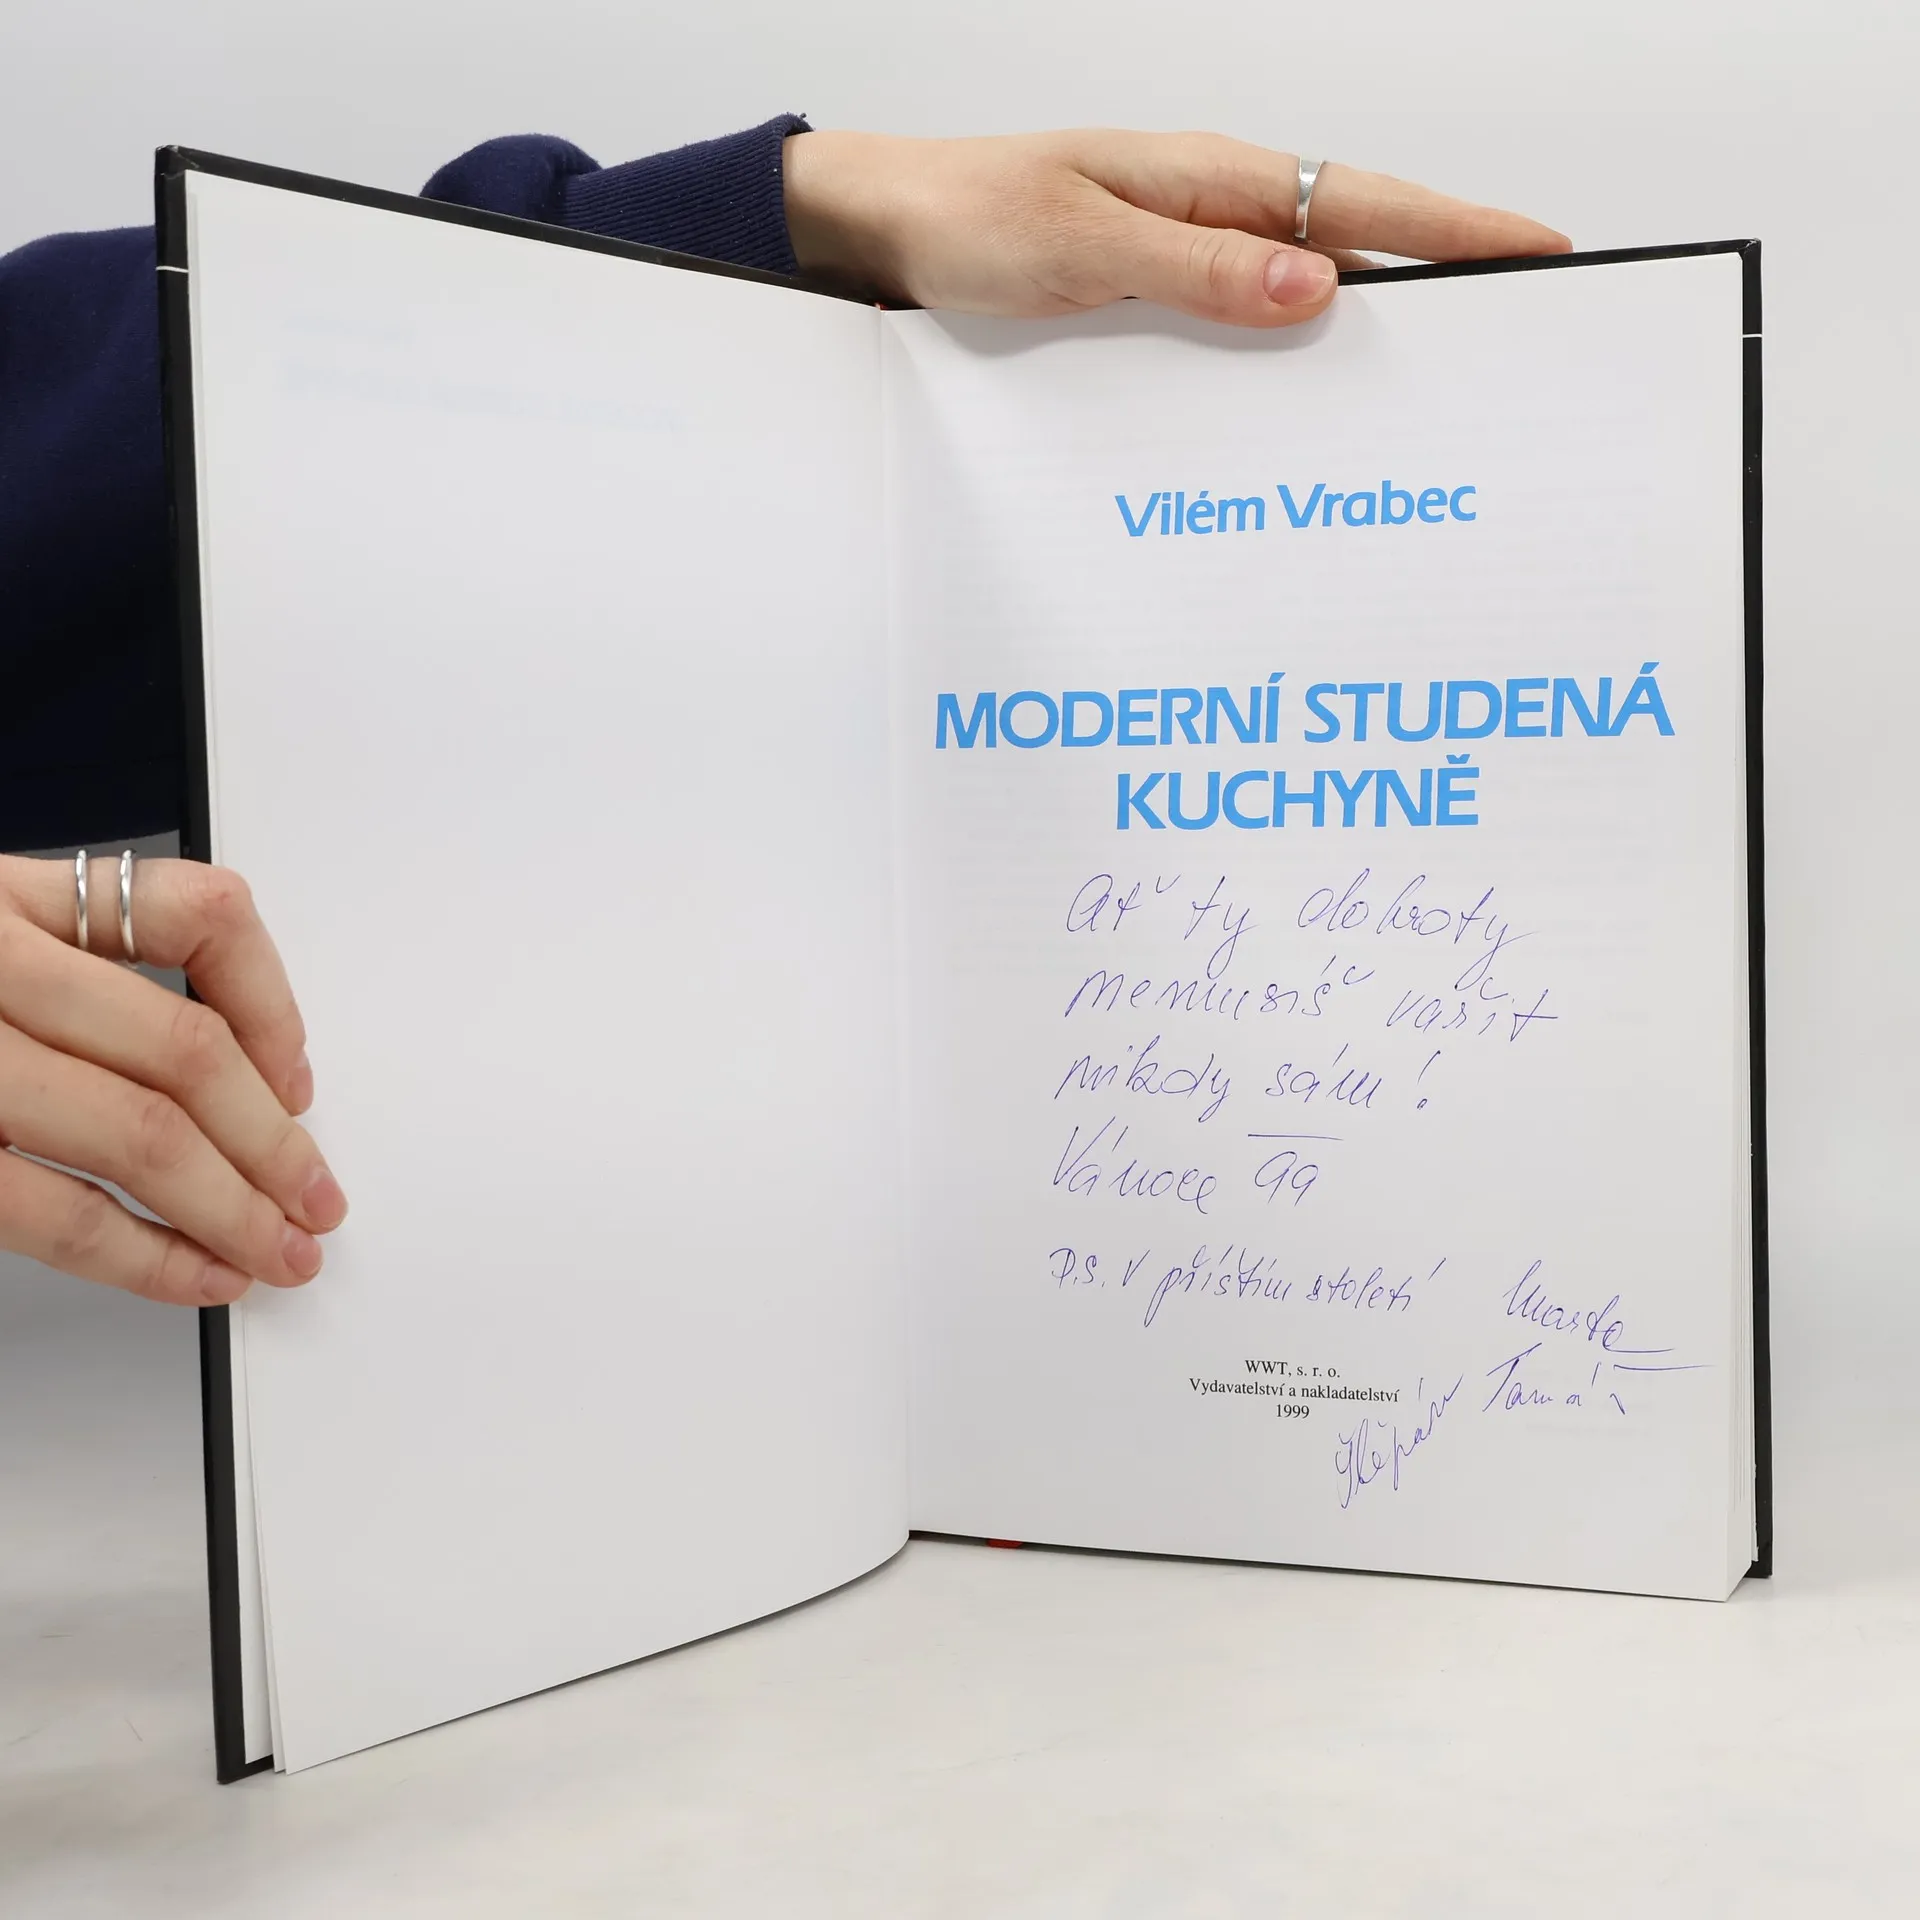 Vilém Vrabec
MODERNÍ STUDENÁ
KUCHYNĚ
Ať ty dobroty
nemusíš vařit
nikdy sám!
Vánoce 99
P.S. V příštím století
Marta
WWT, s. r. o.
Vydavatelství a nakladatelství
1999
Tomáš
Štěpán